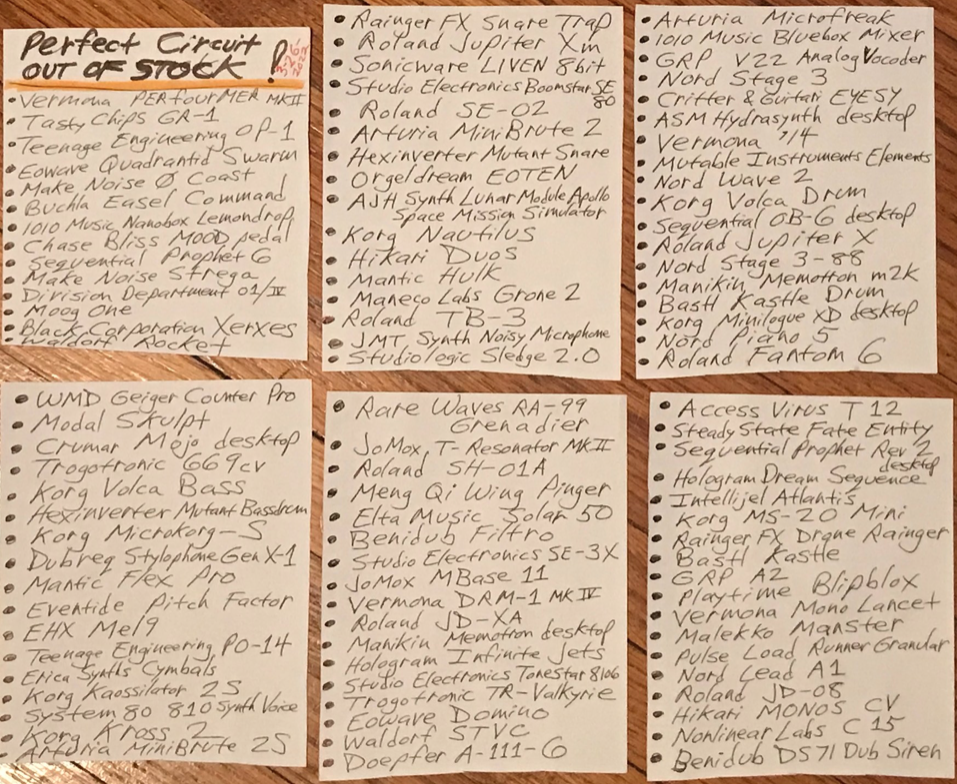 Perfect Circuit
OUT OF STOCK !
3-26-2022
• Vermona PERfourMER MKII
• Tasty Chips GR-1
• Teenage Engineering OP-1
• Eowave Quadrantid Swarm
• Make Noise Ø Coast
• Buchla Easel Command
• 1010 Music Nanobox Lemondrop
• Chase Bliss MOOD pedal
• Sequential Prophet 6
• Make Noise Strega
• Division Department 01/IV
• Moog One
• Black Corporation Xerxes
• Waldorf Rocket
• Rainger FX Snare Trap
• Roland Jupiter Xm
• Sonicware LIVEN 8bit
• Studio Electronics Boomstar SE
80
• Roland SE-02
• Arturia MiniBrute 2
• Hexinverter Mutant Snare
• Orgeldream EOTEN
• AJH Synth Lunar Module Apollo
Space Mission Simulator
• Korg Nautilus
• Hikari Duos
• Mantic Hulk
• Maneco Labs Grone 2
• Roland TB-3
• JMT Synth Noisy Microphone
• Studiologic Sledge 2.0
• Arturia Microfreak
• 1010 Music Bluebox Mixer
• GRP V22 Analog Vocoder
• Nord Stage 3
• Critter & Guitari EYESY
• ASM Hydrasynth desktop
• Vermona '14
• Mutable Instruments Elements
• Nord Wave 2
• Korg Volca Drum
• Sequential OB-6 desktop
• Roland Jupiter X
• Nord Stage 3-88
• Manikin Memotron m2k
• Bastl Kastle Drum
• Korg Minilogue XD desktop
• Nord Piano 5
• Roland Fantom 6
• WMD Geiger Counter Pro
• Modal Skulpt
• Crumar Mojo desktop
• Trogotronic 669cv
• Korg Volca Bass
• Hexinverter Mutant Bassdrum
• Korg Microkorg-S
• Dubreq Stylophone Gen X-1
• Mantic Flex Pro
• Eventide Pitch Factor
• EHX Mel9
• Teenage Engineering PO-14
• Erica Synths Cymbals
• Korg Kaossilator 2S
• System 80 810 Synth Voice
• Korg Kross 2
• Arturia MiniBrute 2S
• Rare Waves RA-99
Grenadier
• JoMox T-Resonator MKII
• Roland SH-01A
• Meng Qi Wing Pinger
• Elta Music Solar 50
• Benidub Filtro
• Studio Electronics SE-3X
• JoMox MBase 11
• Vermona DRM-1 MKIV
• Roland JD-XA
• Manikin Memotron desktop
• Hologram Infinite Jets
• Studio Electronics ToneStar 8106
• Trogotronic TR-Valkyrie
• Eowave Domino
• Waldorf STVC
• Doepfer A-111-6
• Access Virus T 12
• Steady State Fate Entity
• Sequential Prophet Rev 2
desktop
• Hologram Dream Sequence
• Intellijel Atlantis
• Korg MS-20 Mini
• Rainger FX Drone Rainger
• Bastl Kastle
• GRP A2
• Playtime Blipblox
• Vermona Mono Lancet
• Malekko Manster
• Pulse Load Runner Granular
• Nord Lead A1
• Roland JD-08
• Hikari MONOS CV
• Nonlinear Labs C 15
• Benidub DS71 Dub Siren